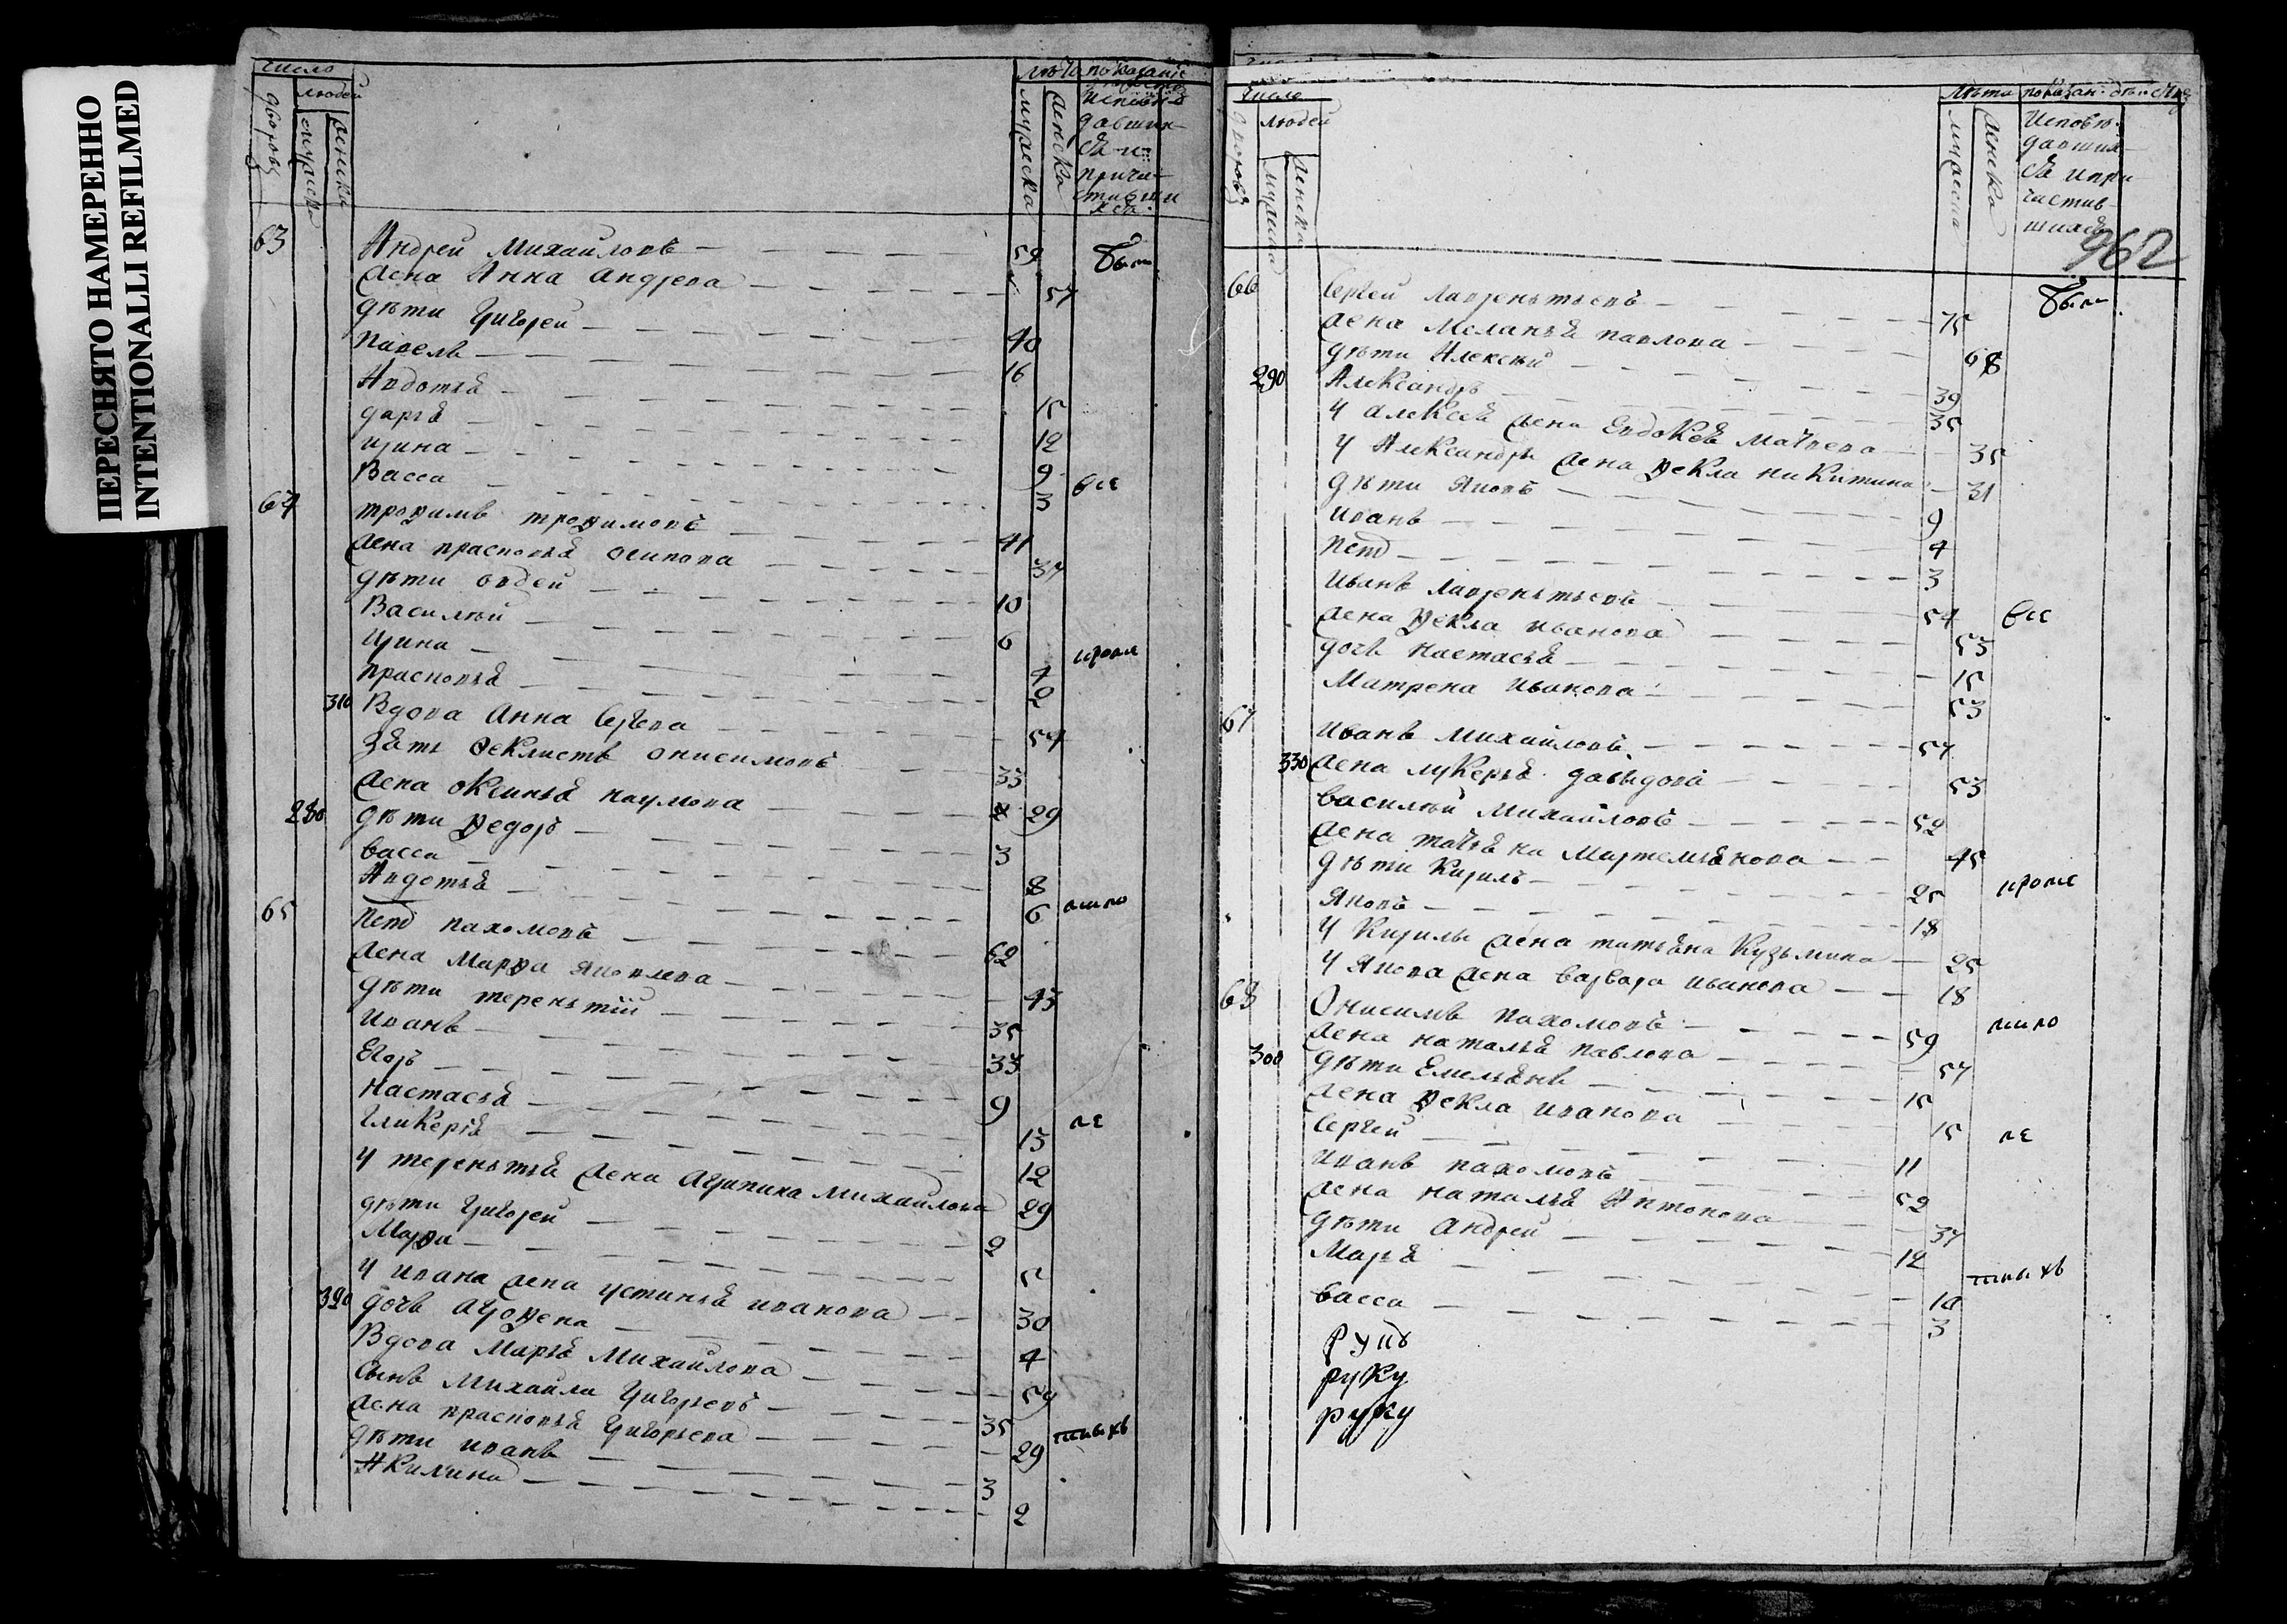 ПЕРЕСНЯТО НАМЕРЕННО
INTENTIONALLI REFILMED
число
людей
дворовъ
мужеска
женска
лѣта показаніе
мужеска
женска
исповѣ
давших
ся и
причи
стивши
хся
63 Андрей Михайловъ 59 были
жена Анна Андрева 57
дѣти Григорей 40
Павелъ 16
Авдотья 15
Дарья 12
Ирина 9
Васса 3 все
64 трофимъ трофимовъ 41
жена прасковья осипова 37
дѣти овдей 10
Василѣй 6
Ирина 4 кроме
прасковья 2
310 Вдова Анна Сергева 54
зять феклистъ онисимовъ 33
жена оксинья наумова 29
280 дѣти федоръ 3
васса 8
Авдотья 6
65 петр пахомовъ 62
жена Марфа Яковлева 43
дѣти терентий 35
Иванъ 33
Егоръ 9
Настасья 13
Гликерія 12
у терентья жена Агрипина Михайлова 29
дѣти Григорей 2
Марфа 5
у ивана жена устинья иванова 30
320 дочь аграфена 4
Вдова Марья Михайлова 59
сынъ Михайла Григорьевъ 35
жена прасковья Григорьева 29
дѣти иванъ 3
Акилина 2
число
дворовъ
людей
мужеска
женска
Лѣта
мужеска
женска
Исповѣ
давших
ся и при
частив
шихся
962
66 Сергей лаврентьевъ 75 были
жена Меланья павлова 68
дѣти Алексѣй 39
290 Александръ 35
у алексея жена Евдокея Матвева 35
у Александры жена фекла никитина 31
дѣти Яковъ 9
Иванъ 4
петр 3
Иванъ лаврентьевъ 54 все
жена фекла иванова 53
дочь Настасья 15
Матрена иванова 53
67 Иванъ Михайловъ 57
330 жена лукерья давыдова 53
василѣй Михайловъ 52
жена татьяна Мартемьянова 45
дѣти Кирилъ 25 кроме
Яковъ 18
у Кирилы жена татьяна Кузьмина 25
у Якова жена варвара иванова 18
68 Онисимъ пахомовъ 59
жена наталья павлова 57
300 дѣти Емельянъ 15
жена фекла иванова 15
Сергей 11
иванъ пахомовъ 52
жена наталья Антонова 37
дѣти андрей 12
Марья 10
васса 3
руку
руку